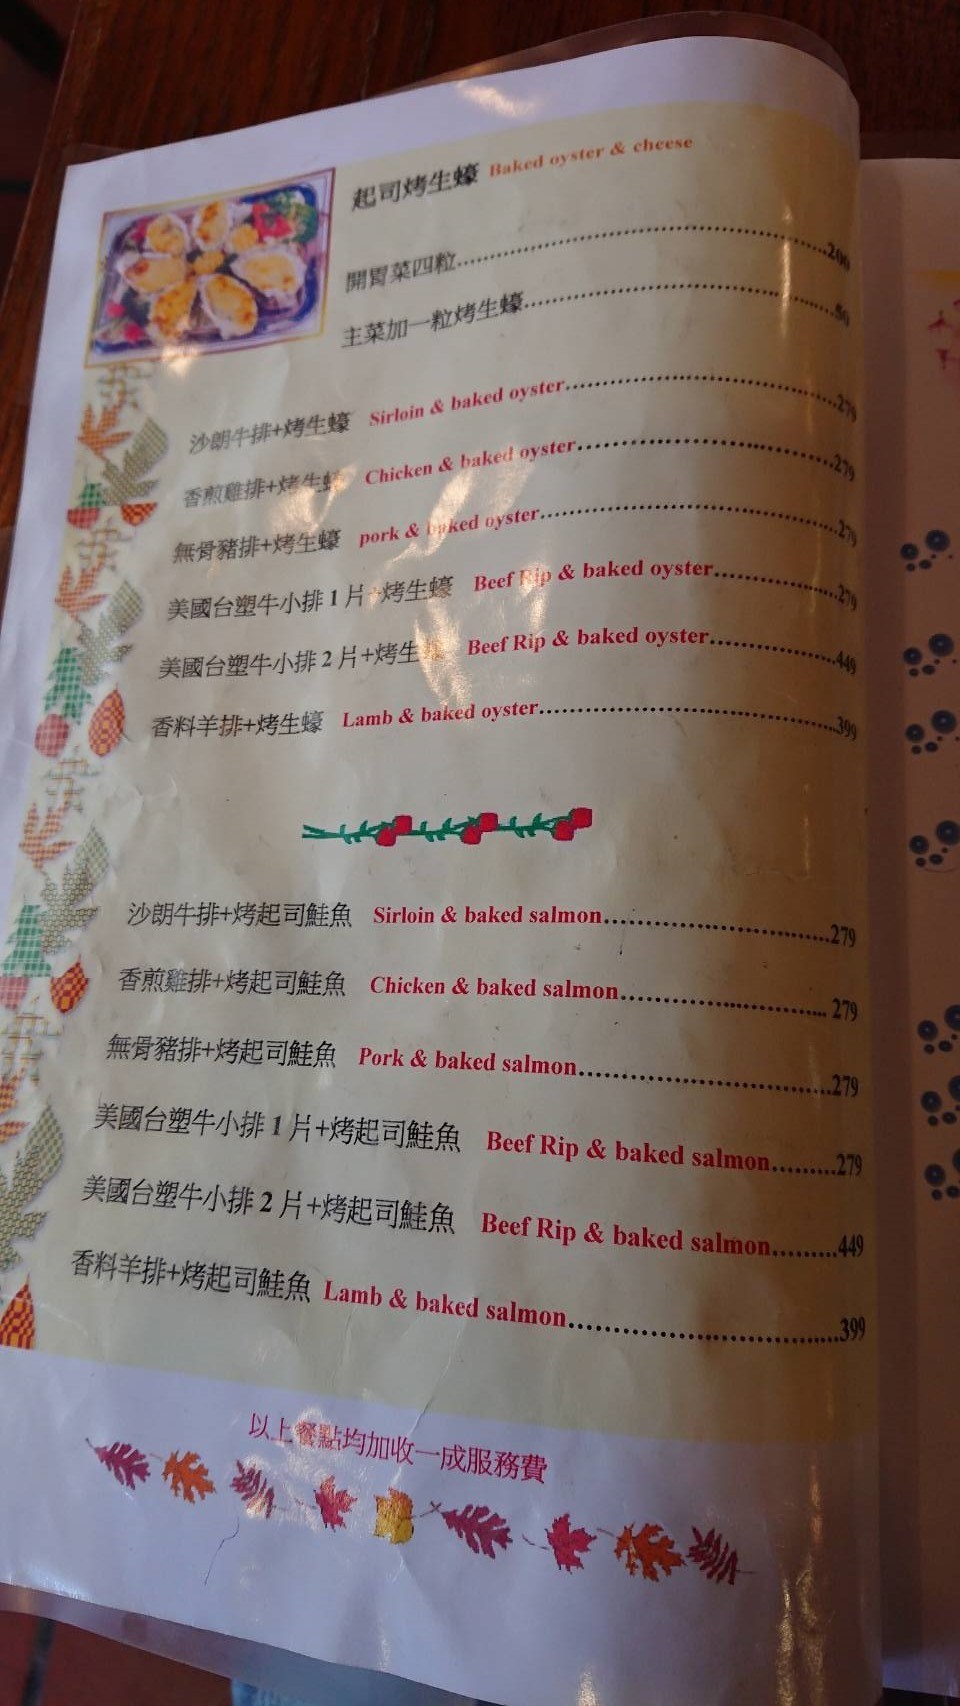 起司烤生蠔 Baked oyster & cheese
開胃菜四粒 200
主菜加一粒烤生蠔 80
沙朗牛排+烤生蠔 Sirloin & baked oyster 279
香煎雞排+烤生蠔 Chicken & baked oyster 279
無骨豬排+烤生蠔 pork & baked oyster 279
美國台塑牛小排1片+烤生蠔 Beef Rip & baked oyster 279
美國台塑牛小排2片+烤生蠔 Beef Rip & baked oyster 449
香料羊排+烤生蠔 Lamb & baked oyster 399
沙朗牛排+烤起司鮭魚 Sirloin & baked salmon 279
香煎雞排+烤起司鮭魚 Chicken & baked salmon 279
無骨豬排+烤起司鮭魚 Pork & baked salmon 279
美國台塑牛小排1片+烤起司鮭魚 Beef Rip & baked salmon 279
美國台塑牛小排2片+烤起司鮭魚 Beef Rip & baked salmon 449
香料羊排+烤起司鮭魚 Lamb & baked salmon 399
以上餐點均加收一成服務費